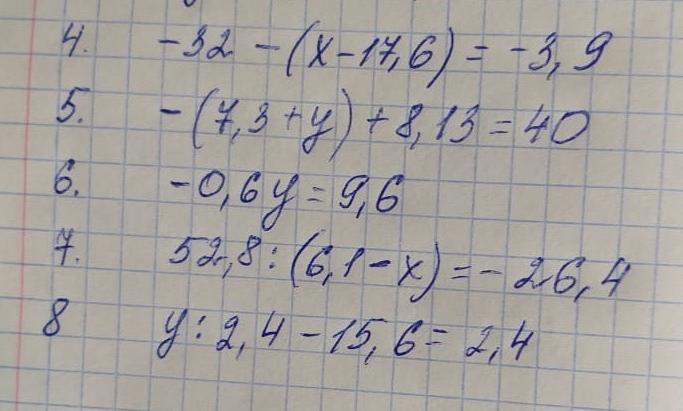 4. -32 - (x - 17,6) = -3,9
5. -(7,3 + y) + 8,13 = 40
6. -0,6y = 9,6
7. 52,8 : (6,1 - x) = - 26,4
8 y : 2,4 - 15,6 = 2,4